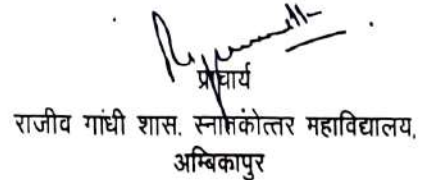 प्राचार्य
राजीव गांधी शास. स्नातकोत्तर महाविद्यालय,
अम्बिकापुर